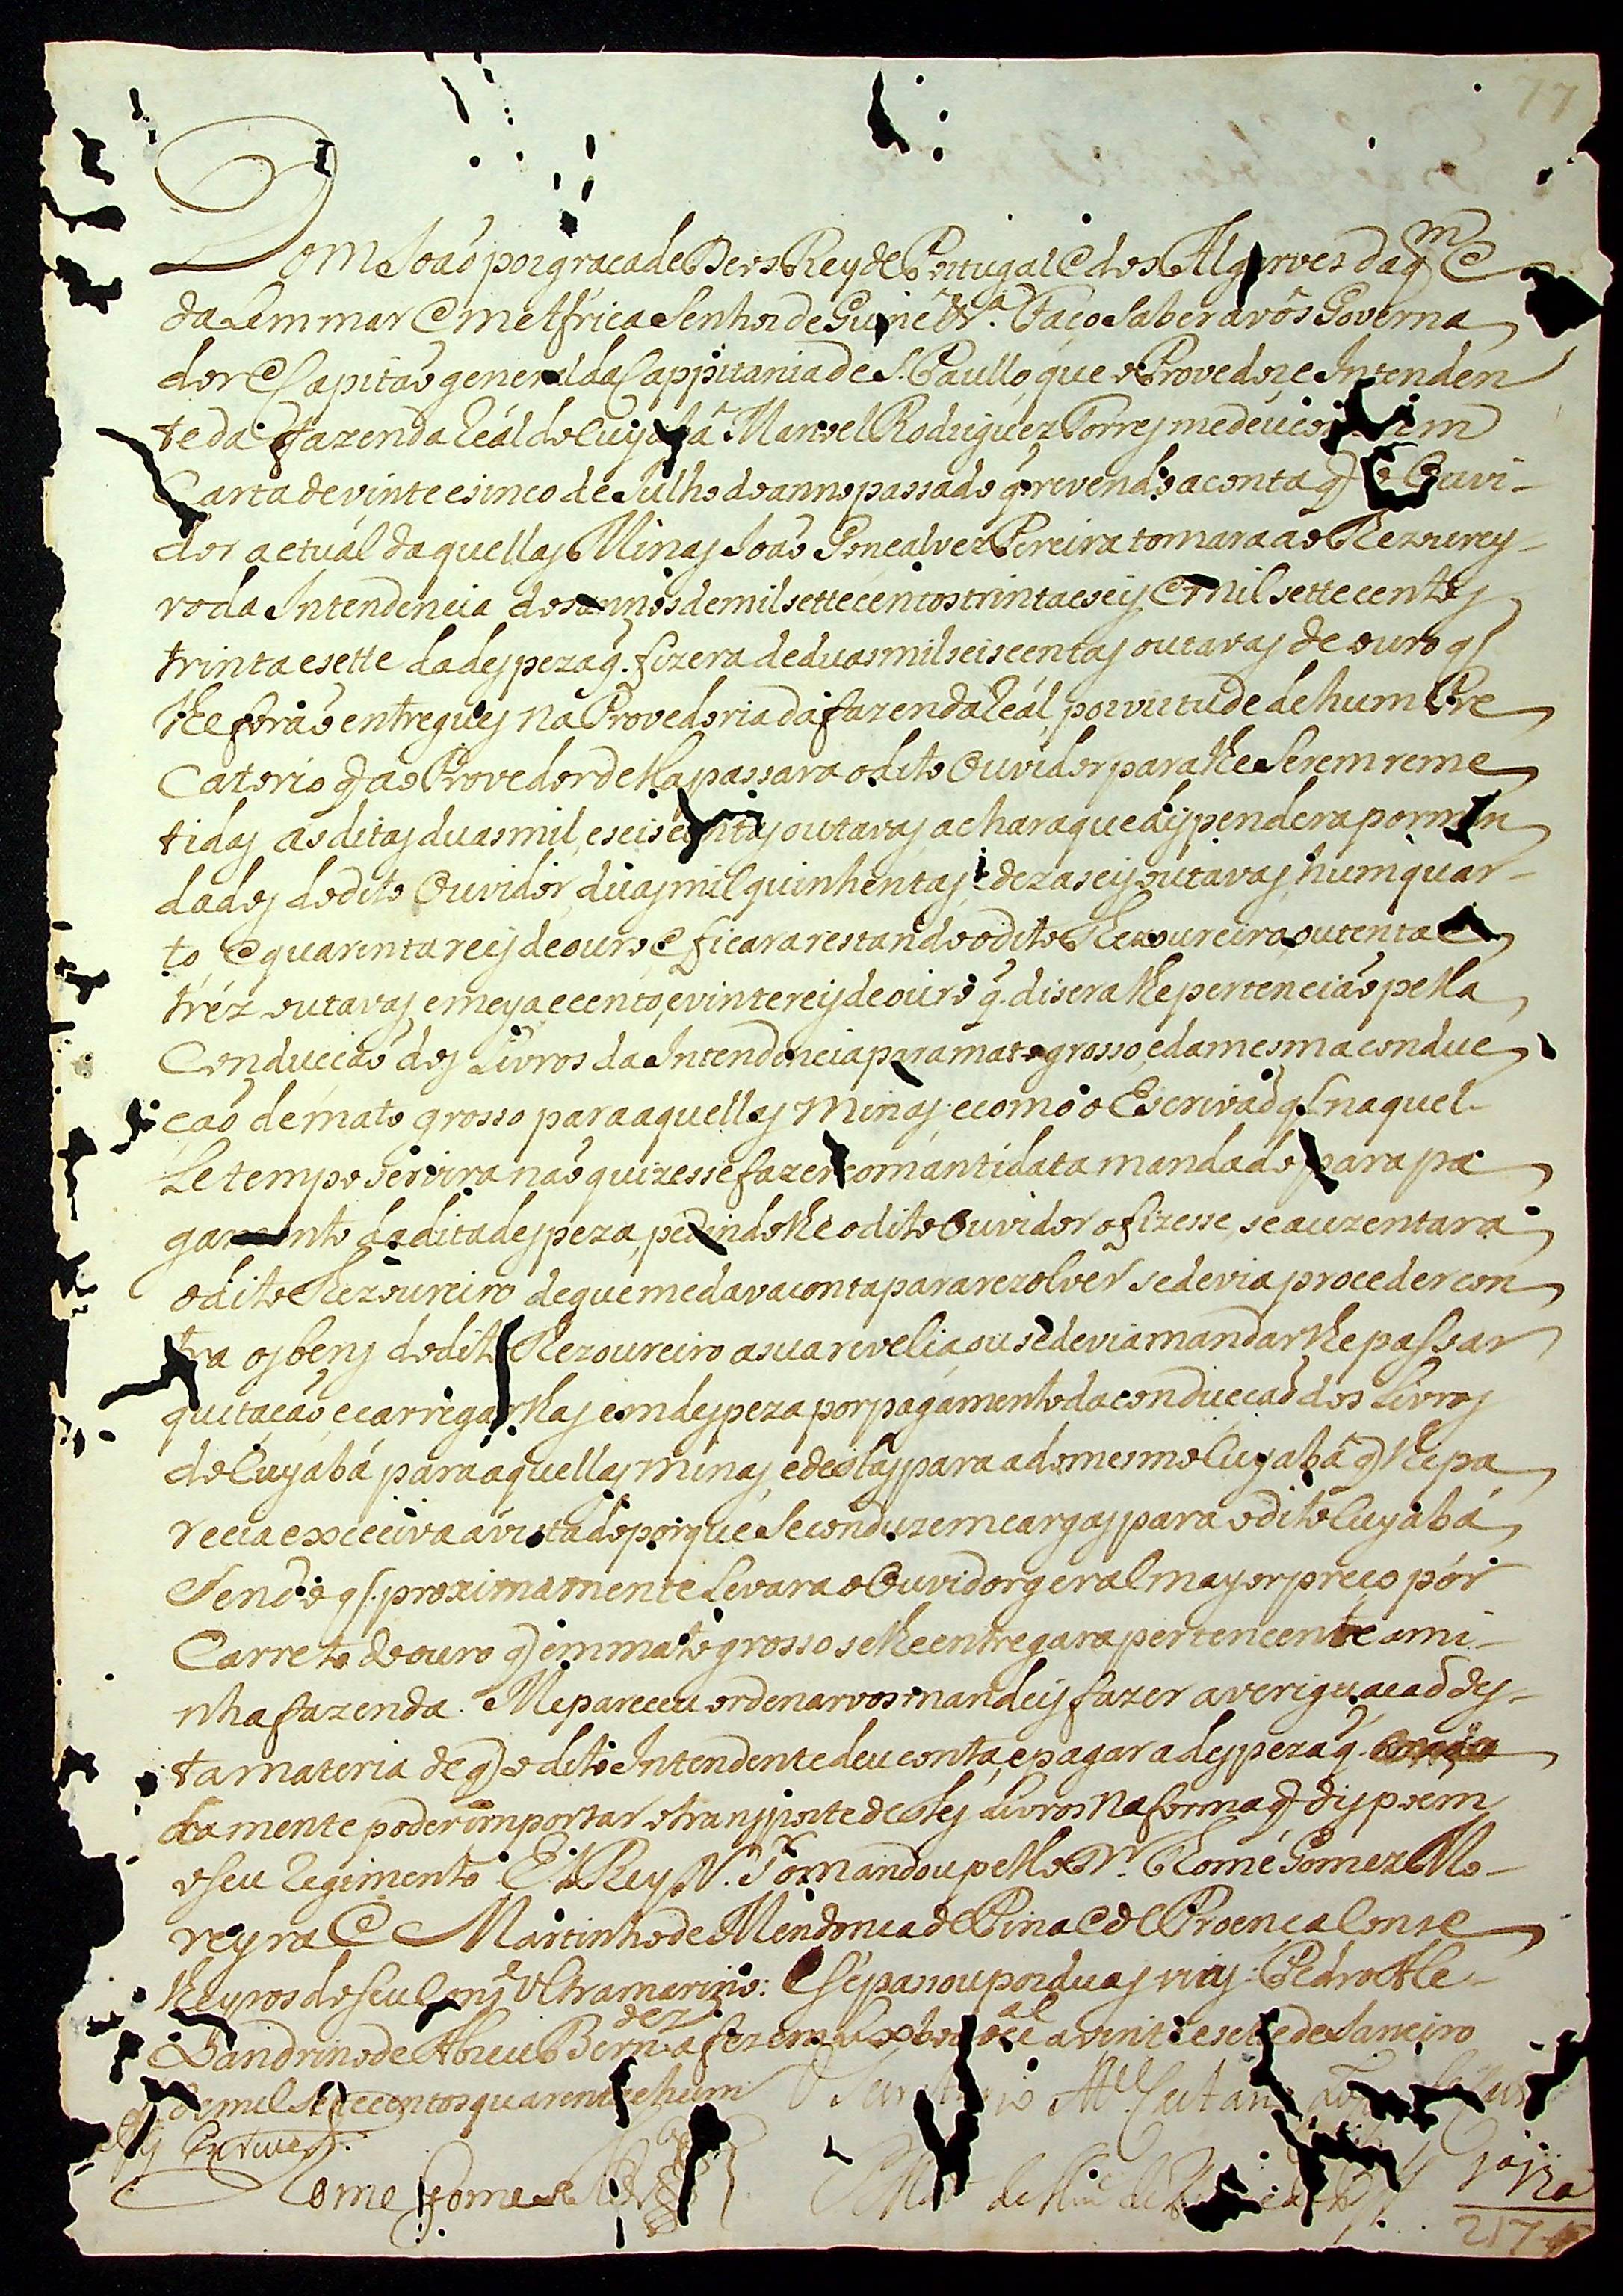 77
Dom Joaõ por graça de Deos Rey de Portugal e dos Algarves daq.^m e
da Lem mar em Africa Senhor de Guine &.^a Faço saber a vôs Governa
dor e Capitaõ general da Cappitania de S. Paullo, que o Provedor e Intenden
te da fazenda Real do Cuyabâ Manoel Rodriguez Torres me deu conta em
Carta de vinte e sinco de Julho do anno passado q. revendo a conta q o Ouvi-
dor actuál daquellas Minas Joaõ Gonçalvez Pereira tomara ao Thezourey-
ro da Intendencia dos annos de mil settecentos trinta e seis, e mil settecentos
trinta e sette da despeza q. fizera de duas mil seiscentas outavas de ouro q
lhe foraõ entregues na Provedoria da fazenda Real, por virtude de hum Pre
catorio q ao Provedor della passara o dito Ouvidor para lhe serem reme
tidas as ditas duas mil, e seiscentas outavas, achara que dispendera por man
dados do dito Ouvidor, duas mil quinhentas, e dezaseis outavas, hum quar-
to, e quarenta reis de ouro e ficara restando o dito Thezoureiro, outenta e
tréz outavas, e meya e cento, e vinte reis de ouro q. disera lhe pertenciaõ pella
Conducçaõ dos Livros da Intendencia para mato grosso, e da mesma conduc
çaõ de mato grosso para aquellas Minas; e como o Escrivaõ q naquel-
le tempo servira naõ quizesse fazer com antidata mandado para pa
gamento da dita despeza, pedindolhe o dito Ouvidor o fizesse, se auzentara
o dito Thezoureiro de que me dava conta para rezolver se devia proceder con
tra os bens do dito Thezoureiro a sua revelia, ou se devia mandarlhe passar
quitaçaõ, e carregarlhas em despeza por pagamento da conducçaõ dos Livros
do Cuyabá para aquellas minas, e destas para a do mesmo Cuyabâ q lhe pa
recia exceciva á vista do porque se conduzem cargas para o dito Cuyabá
Sendo q proximamente Levara o Ouvidor geral mayor preço pór
Carreto do ouro q em mato grosso se lhe entregara pertencente a mi-
nha fazenda. Me pareceu ordenarvos mandeis fazer averiguacaõ des-
ta materia de q o dito Intendente deu conta, e pagar a despeza q.
damente poder importar o transporte destes livros na forma q dispoem
o seu Regimento. El Rey N. S.^r o mandou pello D.^r Thomé Gomez Mo-
reyra e Martinho de Mendonca de Pina e de Proenca Conse
lheyros do seu Cons.^o Ultramarino: e se passou por duas vias. Pedro Ale-
xandrino de Abreu Bern.^dez a fez em Lxboa o^al a vinte e sete de Janeiro
de mil settecentos quarenta e hum. O Secretario M.^el Caetano
Thome Gomes